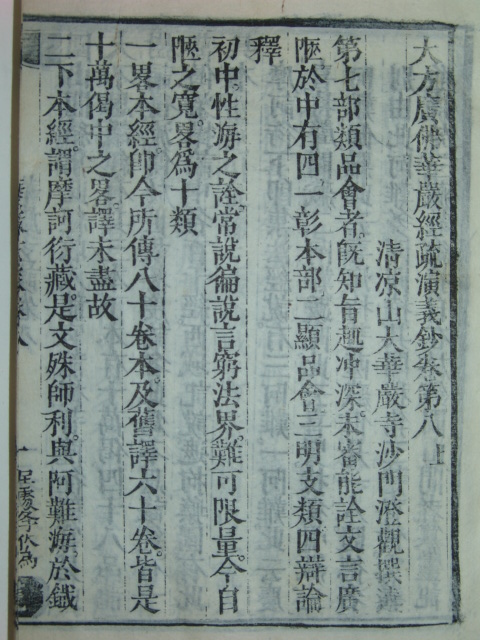 大方廣佛華嚴經疏演義鈔卷第八上
清凉山大華嚴寺沙門澄觀撰述
第七部類品會者既知旨趣冲深未審能詮文言廣
陿於中有四一彰本部二顯品會三明支類四辯論
釋
初中性海之詮常說徧說言窮法界難可限量今自
陿之寬畧爲十類
一畧本經卽今所傳八十卷本及舊譯六十卷皆是
十萬偈中之畧譯未盡故
二下本經謂摩訶衍藏是文殊師利與阿難海於鐵